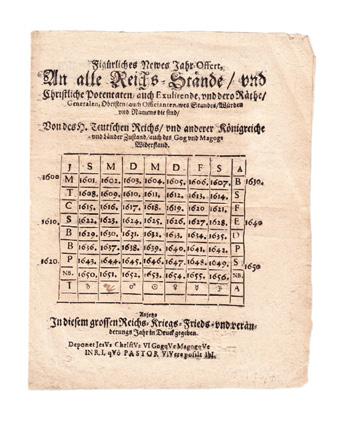 Figürliches Newes Jahr-Offert,
An alle Reichs-Stände/ vnd
Christliche Potentaten/ auch Exulirende, vnd dero Räthe/
Generalen, Obristen/ auch Officianten, wes Standes/ Würden
vnd Namens die sind/
Von des H. Teutschen Reichs/ vnd anderer Königreiche
vnd Länder Zustand/ auch des Gog vnd Magogs
Widerstand.
J S M D M D F S A
1600. M 1601. 1602. 1603. 1604. 1605. 1606. 1607. B 1630.
T 1608. 1609. 1610. 1611. 1612. 1613. 1614. S
C 1615. 1616. 1617. 1618. 1619. 1620. 1621. F
1610. S 1622. 1623. 1624. 1625. 1626. 1627. 1628. E 1640
B 1629. 1630. 1631. 1632. 1633. 1634. 1635. D
B 1636. 1637. 1638. 1639. 1640. 1641. 1642. P
1620. P 1643. 1644. 1645. 1646. 1647. 1648. 1649. S 1650
NB. 1650. 1651. 1652. 1653. 1654. 1655. 1656. NB.
T ♄ ☽ ♂ ☉ ☿ ♃ ♀ A
Anjetzo
In diesem grossen Reichs-Kriegs-Frieds-vnd verän-
derungs Jahr in Druck gegeben.
Deponet JesVs ChrIstVs VI GogqVe MagogqVe
INRI. qVô PASTOR VIVere possit IbI.